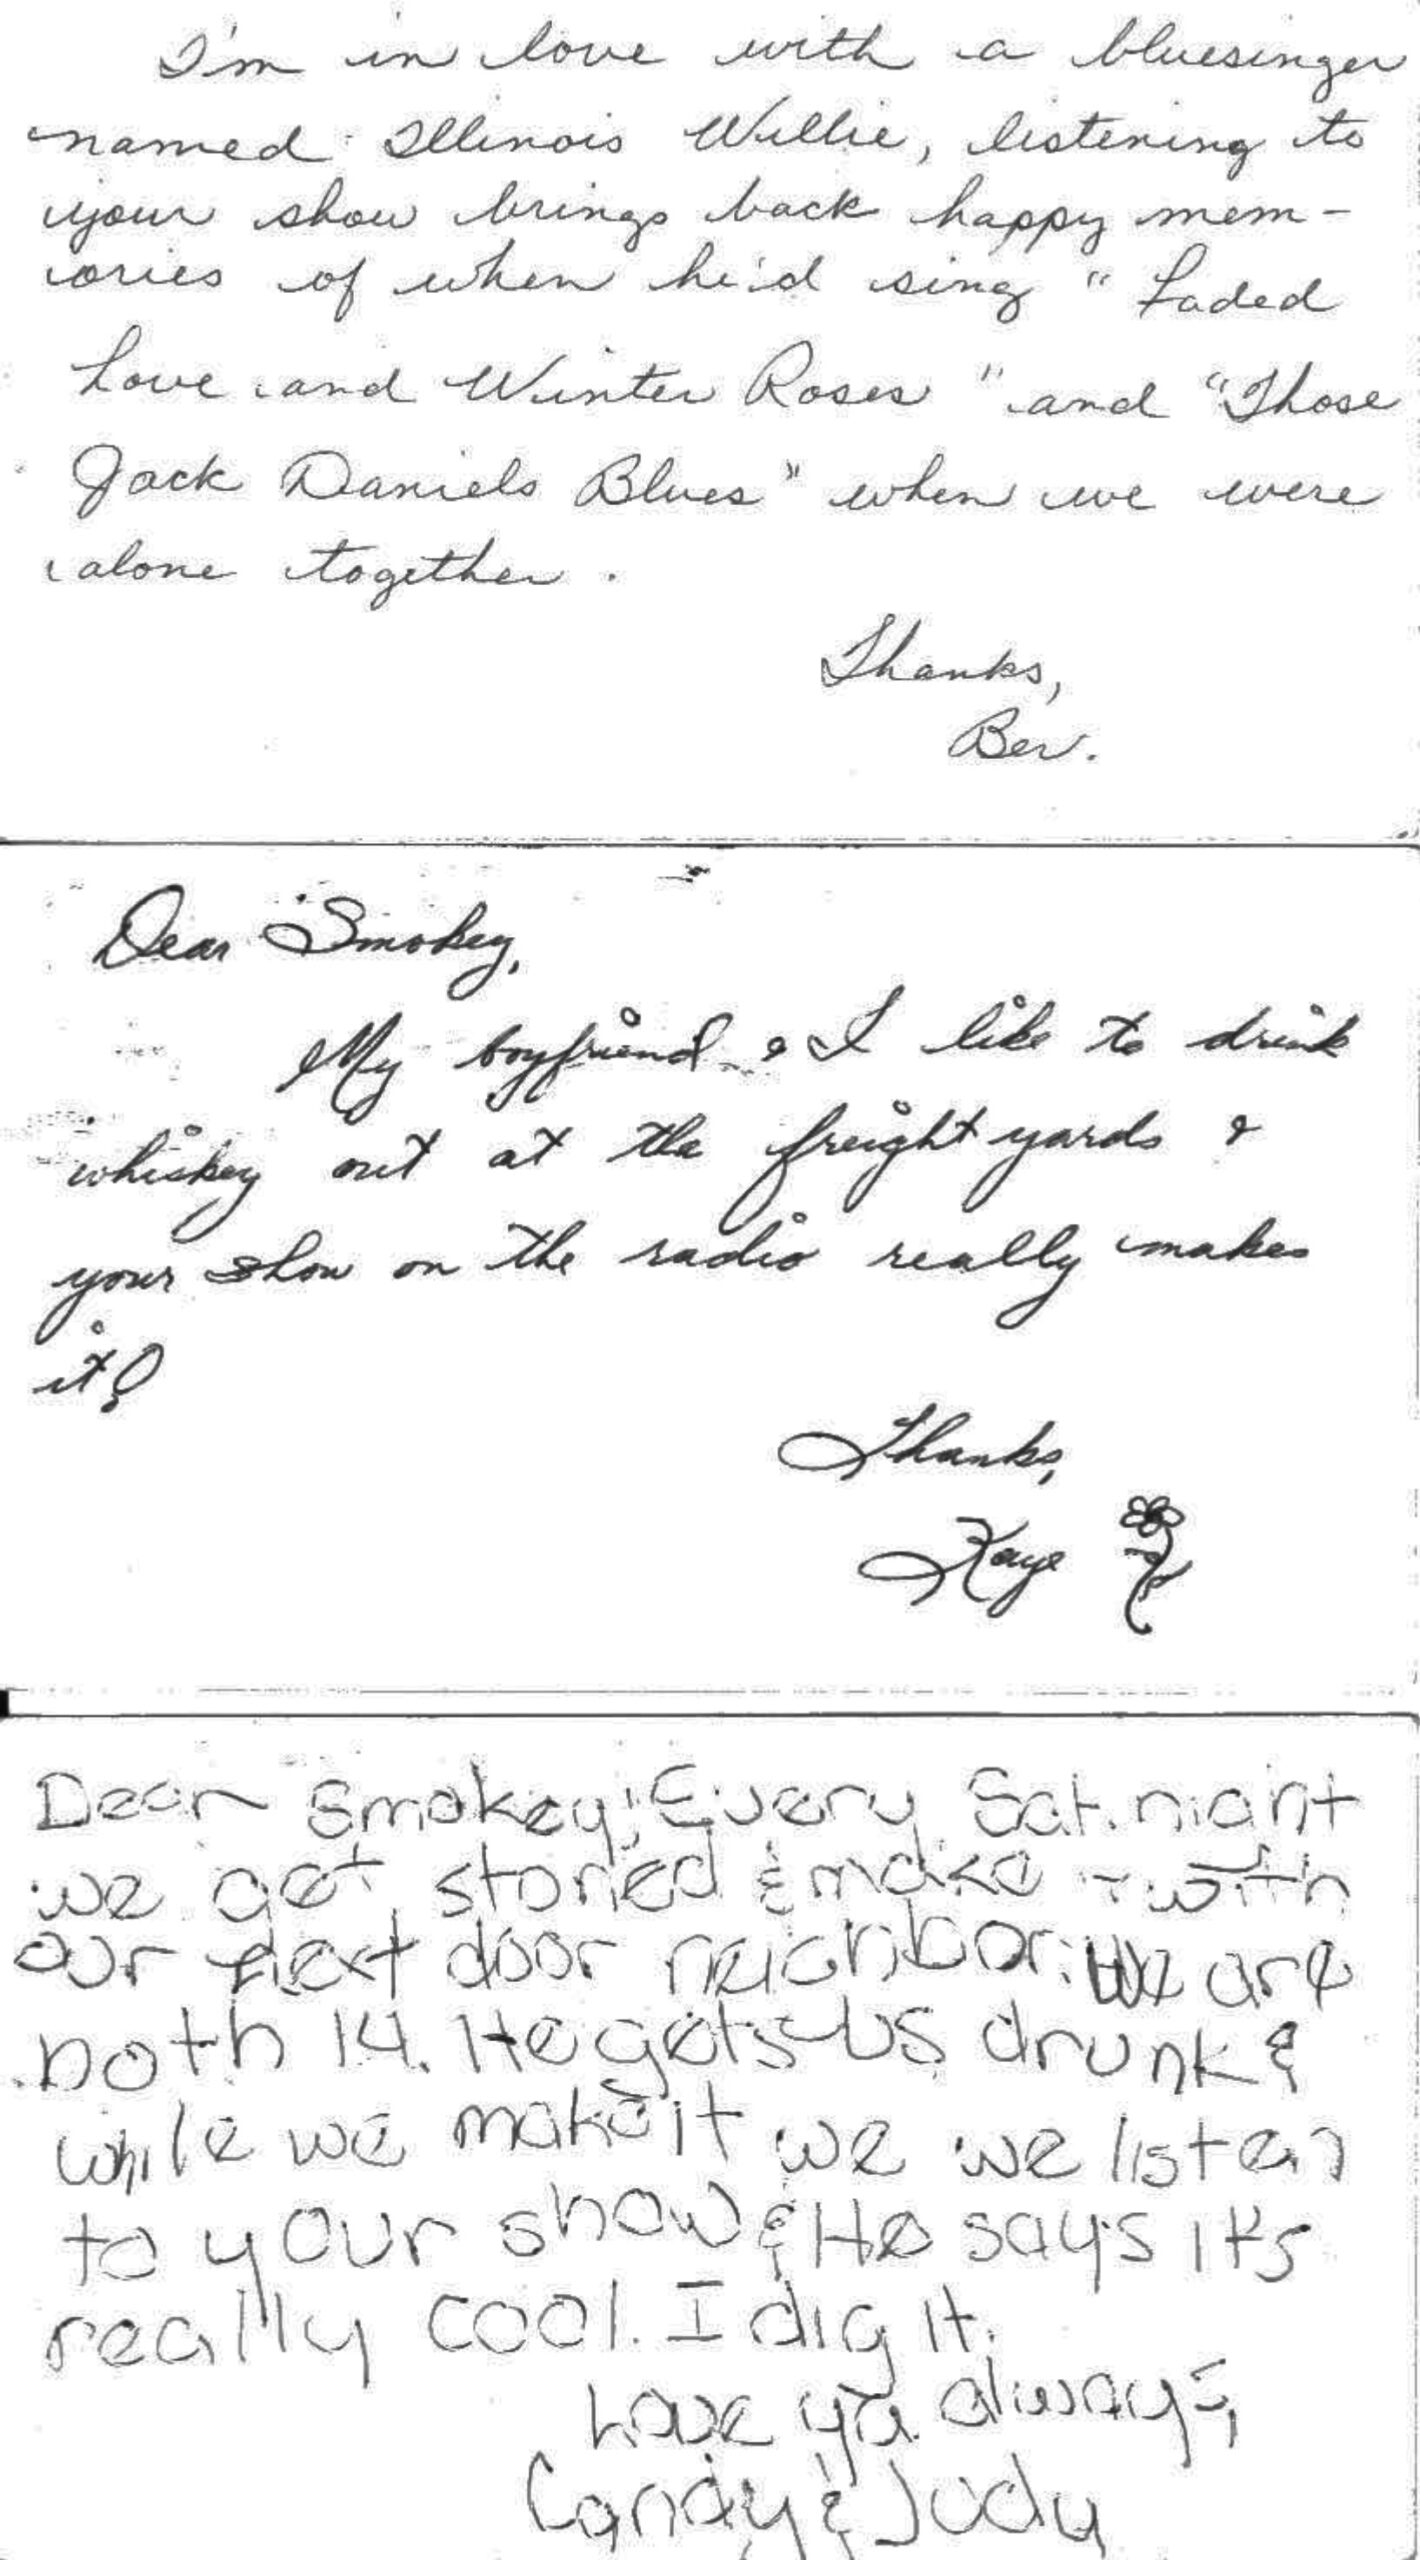 I'm in love with a bluesinger
named Illinois Willie, listening to
your show brings back happy mem-
ories of when he'd sing "Faded
Love and Winter Roses" and "Those
Jack Daniels Blues" when we were
alone together.
Thanks,
Bev.
Dear Smokey,
My boyfriend & I like to drink
whiskey out at the freight yards &
your show on the radio really makes
it!
Thanks,
Kaye
Dear Smokey; Every Sat. night
we get stoned & make it with
our next door neighbor. We are
both 14. He gets us drunk &
while we make it we we listen
to your show & He says it's
really cool. I dig it.
Love ya always,
Candy & Judy